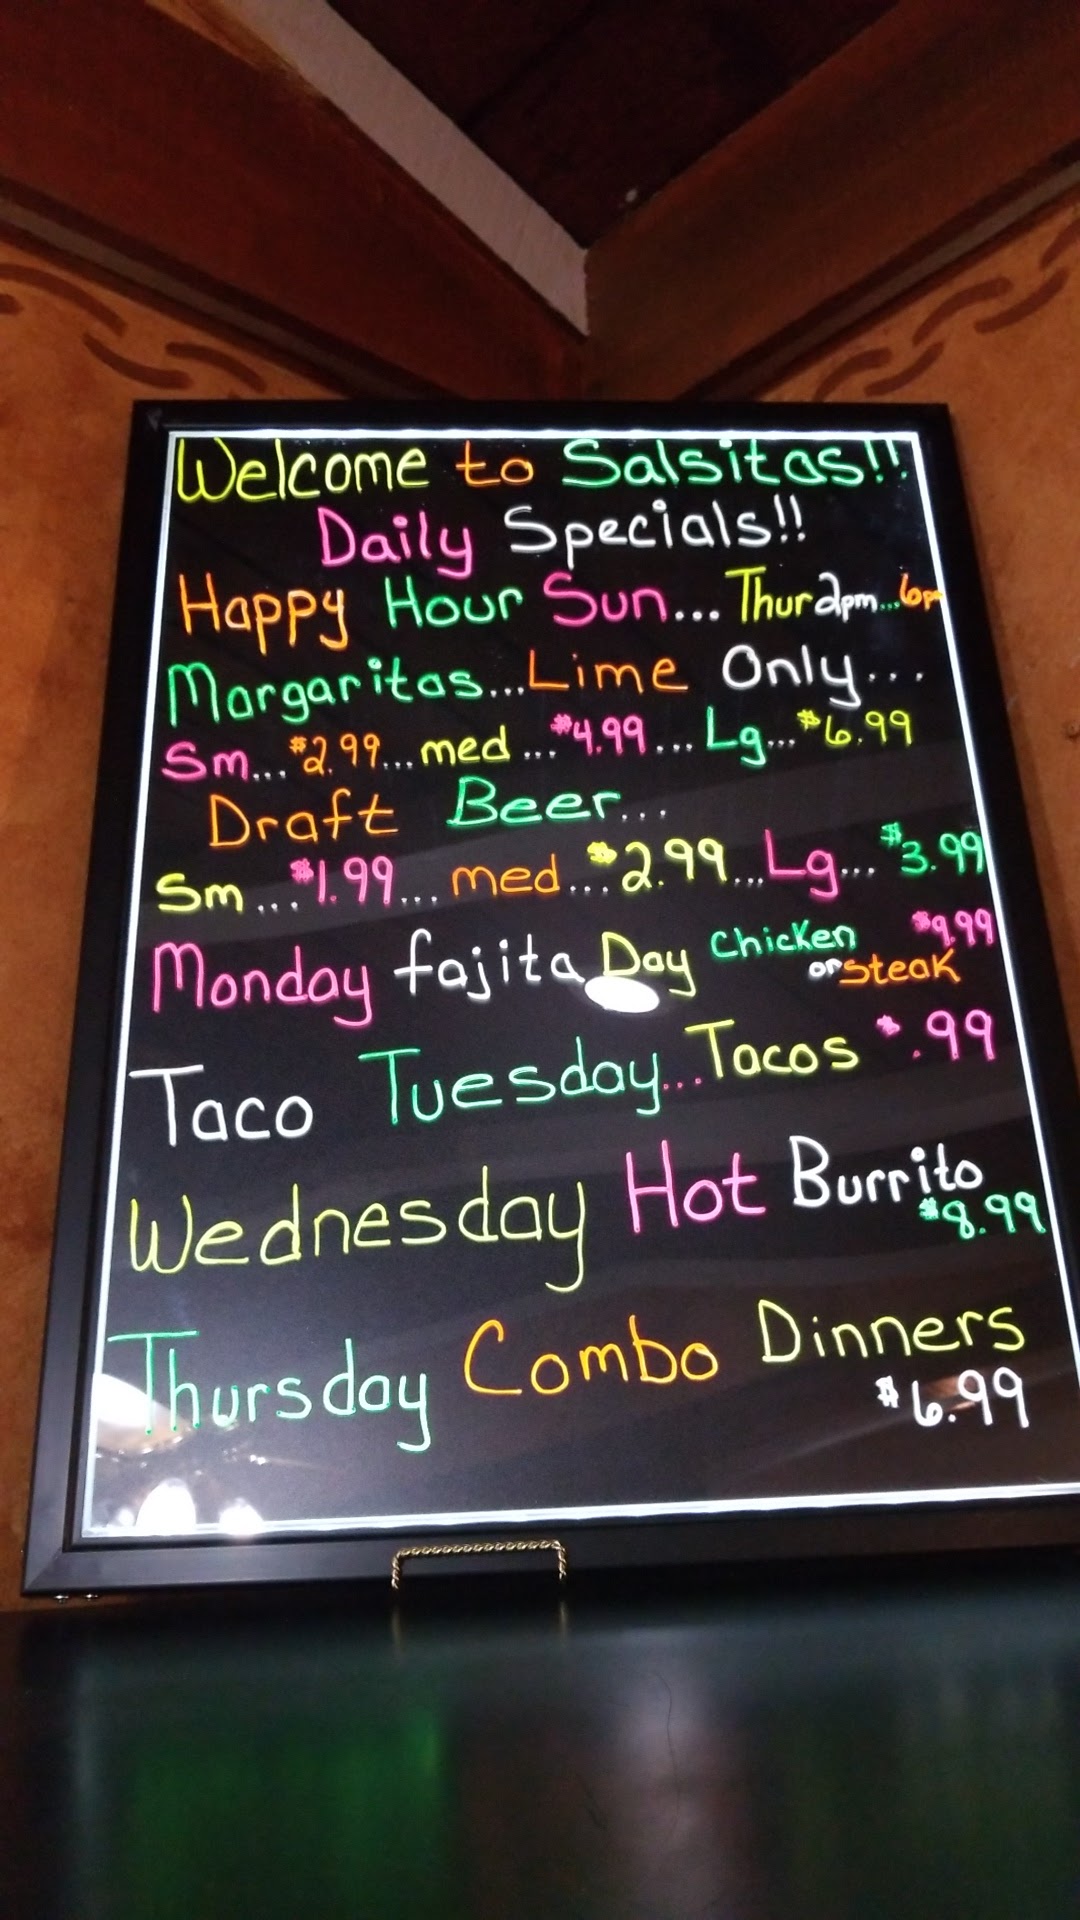 Welcome to Salsitas!!
Daily Specials!!
Happy Hour Sun... Thur 2pm...6pm
Margaritas...Lime Only...
Sm...$2.99...med...$4.99...Lg...$6.99
Draft Beer...
Sm...$1.99...med...$2.99...Lg...$3.99
Monday fajita Day Chicken or Steak $9.99
Taco Tuesday...Tacos $.99
Wednesday Hot Burrito
$8.99
Thursday Combo Dinners
$6.99